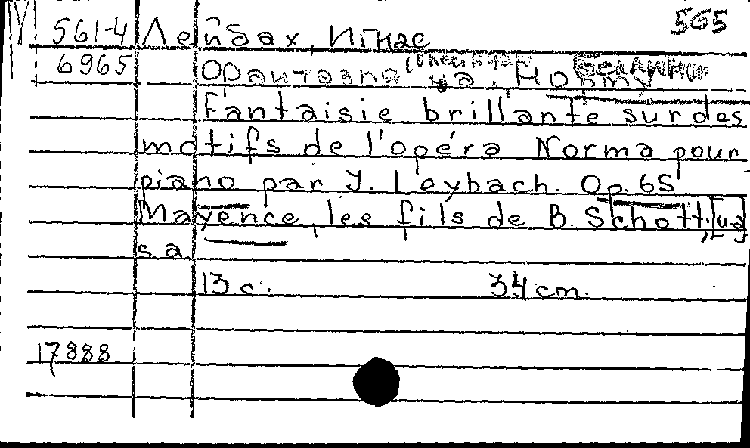 565
М 561-4 Лейбах, Игнас
6965 Фантазия на "Норму" Беллини
Fantaisie brillante sur des
motifs de l'opéra Norma pour
piano par J. Leybach. Op. 65
Mayence, les fils de B. Schott, [ид]
s a
13 с. 34 cm.
17888